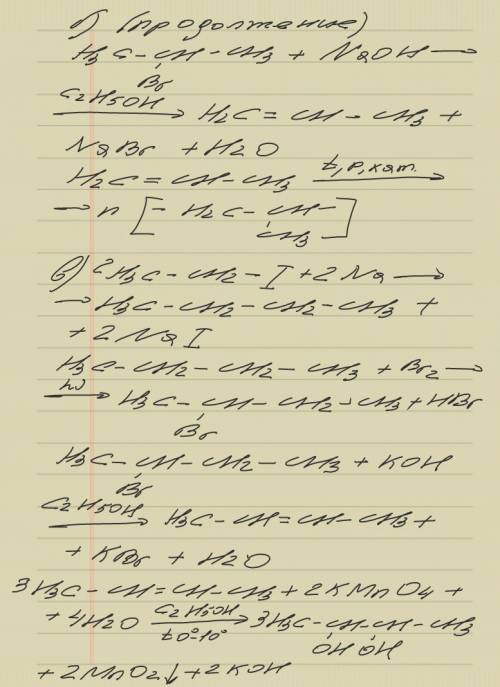 б) (продолжение)
H3C – CH – CH3 + NaOH →
Br
C2H5OH → H2C = CH – CH3 +
NaBr + H2O
H2C = CH – CH3 t, p, кат. →
→ n [ – H2C – CH – ]
CH3
в) 2H3C – CH2 – I + 2Na →
→ H3C – CH2 – CH2 – CH3 +
+ 2NaI
H3C – CH2 – CH2 – CH3 + Br2 →
hν → H3C – CH – CH2 – CH3 + HBr
Br
H3C – CH – CH2 – CH3 + KOH
Br
C2H5OH → H3C – CH = CH – CH3 +
+ KBr + H2O
3H3C – CH = CH – CH3 + 2KMnO4 +
+ 4H2O C2H5OH t 0°-10° → 3H3C – CH – CH – CH3
OH OH
+ 2MnO2↓ + 2KOH